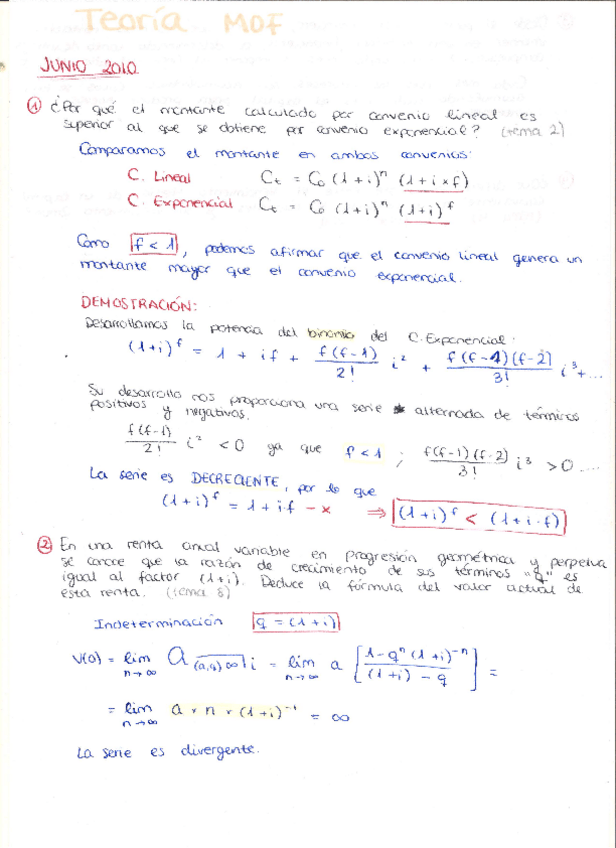 Teoría MOF
JUNIO 2010
① ¿Por qué el montante calculado por convenio lineal es
superior al que se obtiene por convenio exponencial? (tema 2)
Comparamos el montante en ambos convenios:
C. Lineal Ct = C0 (1+i)^n (1+i×f)
C. Exponencial Ct = C0 (1+i)^n (1+i)^f
Como f < 1, podemos afirmar que el convenio lineal genera un
montante mayor que el convenio exponencial.
DEMOSTRACIÓN:
Desarrollamos la potencia del binomio del C. Exponencial:
(1+i)^f = 1 + if + f(f-1)/2! i² + f(f-1)(f-2)/3! i³ + ...
Su desarrollo nos proporciona una serie alternada de términos
positivos y negativos.
f(f-1)/2! i² < 0 ya que f < 1 ; f(f-1)(f-2)/3! i³ > 0 ....
La serie es DECRECIENTE, por lo que
(1+i)^f = 1 + i·f - x ⇒ (1+i)^f < (1+i·f)
② En una renta anual variable en progresión geométrica y perpetua
se conoce que la razón de crecimiento de sus términos "q" es
igual al factor (1+i). Deduce la fórmula del valor actual de
esta renta. (tema 8)
Indeterminación q = (1+i)
V(0) = lim n→∞ A (a,q) ∞ i = lim n→∞ a [1-q^n (1+i)^-n / (1+i) - q] =
= lim n→∞ a × n × (1+i)^-1 = ∞
La serie es divergente.